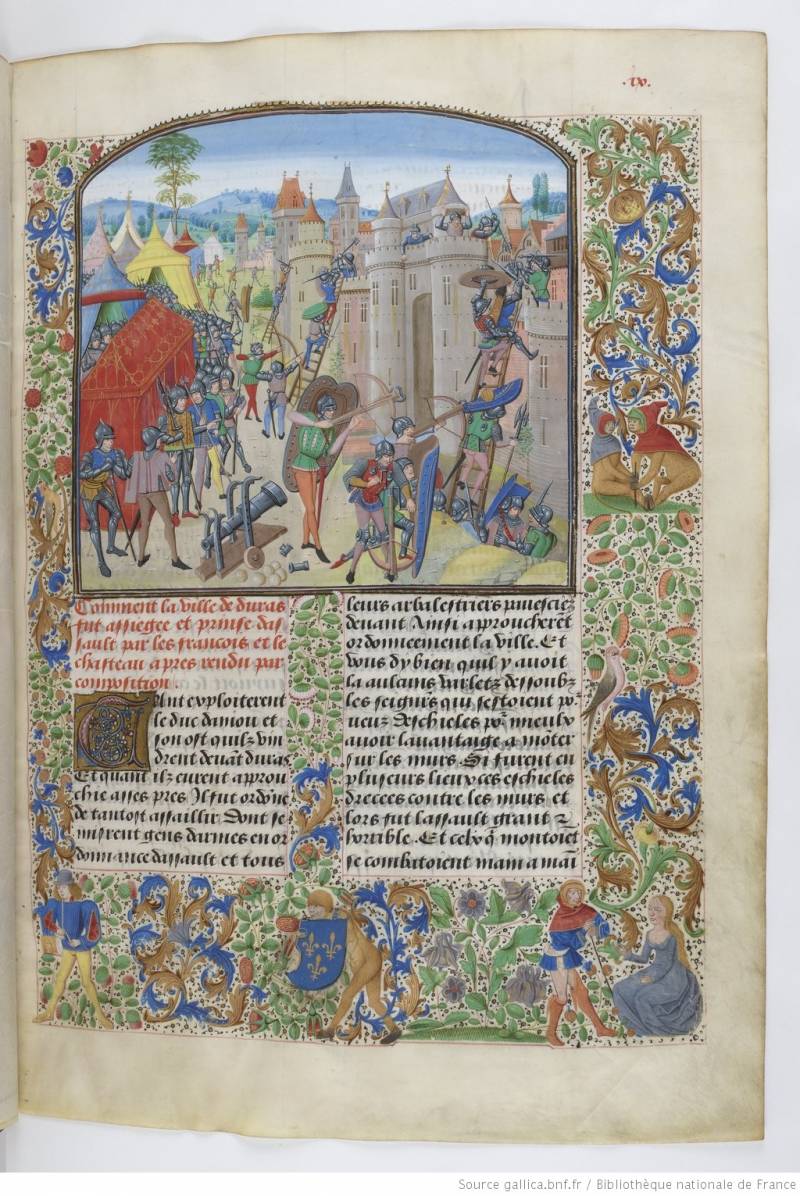 xv.
Comment la ville de duras
fut assiegee et prinse das
sault par les francois et le
chasteau apres rendu par
composition.
Tant exploiterent
le duc damou et
son ost quilz vin
drent deuāt duras
Et quant ilz eurent aprou
chie asses pres Il fut ordōne
de tantost assaillir Dont se
misrent gens darmes en or
donnance dassault et tous
leurs arbalestriers pauescież
deuant Ainsi approucherēt
ordonneement la ville. Et
vous dy bien quil y auoit
la aulcuns varletz dessoubz
les seignrs qui sestoient po
ueuz deschieles por mieulx
auoir lauantaige a mōter
sur les murs. Si furent en
pluseurs lieux ces eschieles
drecees contre les murs et
lors fut lassault grant &
horrible. Et celx q̄ montoiēt
se combatoient main a mai
Source gallica.bnf.fr / Bibliothèque nationale de France